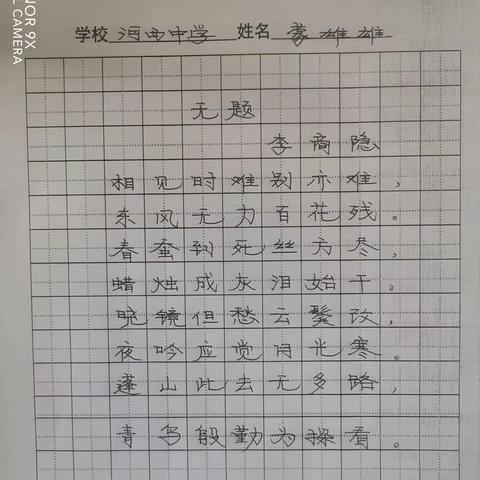 HONOR 9X
CAMERA
学校 河西中学 姓名 蒙雄雄
无题
李商隐
相见时难别亦难，
东风无力百花残。
春蚕到死丝方尽，
蜡烛成灰泪始干。
晓镜但愁云鬓改，
夜吟应觉月光寒。
蓬山此去无多路，
青鸟殷勤为探看。